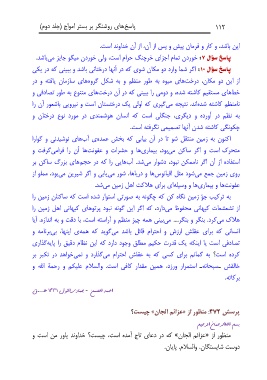 پاسخ‌های روشنگر بر بستر امواج (جلد دوم)
۱۱۲
این باشد، و کار و فرمان پیش و پس از آن، از آن خداوند است.
پاسخ سؤال ۷: خوردن تمام اجزای خرچنگ حرام است، ولی خوردن میگو جایز می‌باشد.
پاسخ سؤال ۸: اگر شما وارد دو مکان شوی که در آنها درختانی باشد و ببینی که در یکی
از این دو مکان، درخت‌های میوه به طور منظم و به شکل گروه‌های سازمان یافته و در
خط‌های مستقیم کاشته شده، و دومی را ببینی که در آن درخت‌های متنوع به طور تصادفی و
نامنظم کاشته شده‌اند، نتیجه می‌گیری که اولی یک درختستان است و نیرویی باشعور آن را
به نظم در آورده و دیگری، جنگلی است که انسان هوشمندی در مورد نوع درختان و
چگونگی کاشته شدن آنها تصمیمی نگرفته است.
اکنون به زمین منتقل شو تا در آن بیابی که بخش عمده‌ی آب‌های نوشیدنی و گوارا
متحرک است و اگر ساکن می‌بود، بیماری‌ها و حشرات و عفونت‌ها آن را فرامی‌گرفت و
استفاده از آن اگر ناممکن نبود، دشوار می‌شد. آب‌هایی را که در حجم‌های بزرگ ساکن بر
روی زمین جمع می‌شود مثل اقیانوس‌ها و دریاها، شور می‌یابی و اگر شیرین می‌بود، مملو از
عفونت‌ها و بیماری‌ها و وسیله‌ای برای هلاکت اهل زمین می‌شد.
به ترکیب جوّ زمین نگاه کن که چگونه به صورتی استوار شده است که ساکنان زمین را
از تشعشعات کیهانی محفوظ می‌دارد، که اگر این گونه نبود پرتوهای کیهانی اهل زمین را
هلاک می‌کرد. بنگر و بنگر.... می‌بینی همه چیز منظم و آراسته است، با دقت و به اندازه. آیا
انسانی که برای عقلش ارزش و احترام قائل باشد می‌گوید که همه‌ی اینها، بی‌برنامه و
تصادفی است یا اینکه یک قدرت حکیم مطلق وجود دارد که این نظام دقیق را پایه‌گذاری
کرده است؟ به گمانم برای کسی که به عقلش احترام می‌گذارد و نمی‌خواهد در تکبر بر
خالقش سبحانه، استمرار ورزد، همین مقدار کافی است. والسلام علیکم و رحمة الله و
برکاته.
پرسش ۴۷۳: منظور از «عزائم الجان» چیست؟
بسم الله الرحمن الرحیم
منظور از «عزائم الجان» که در دعای تاج آمده است، چیست؟ خداوند یاور من است و
دوست شایستگان. والسلام. پایان.